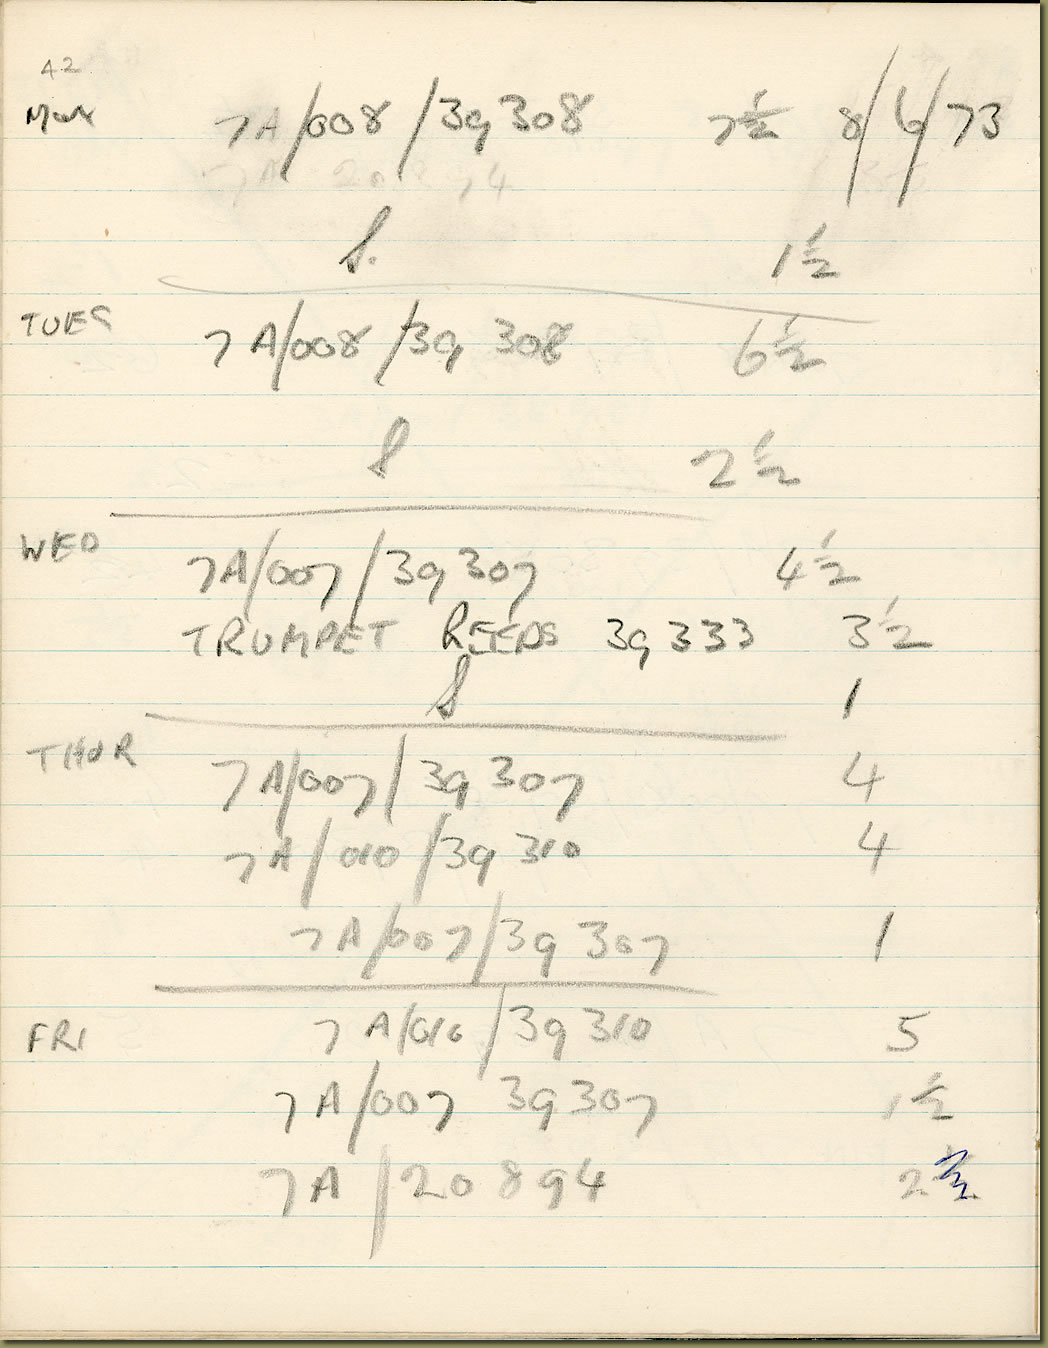 42
MON 7A/008/39308 7½ 8/6/73
7A 20894
S. 1½
TUES 7A/008/39 308 6½
S 2½
WED 7A/007/39307 4½
TRUMPET REEDS 39333 3½
S 1
THUR 7A/007/39307 4
7A/010/39310 4
7A/007/39307 1
FRI 7A/010/39310 5
7A/007 39307 1½
7A/20894 2½